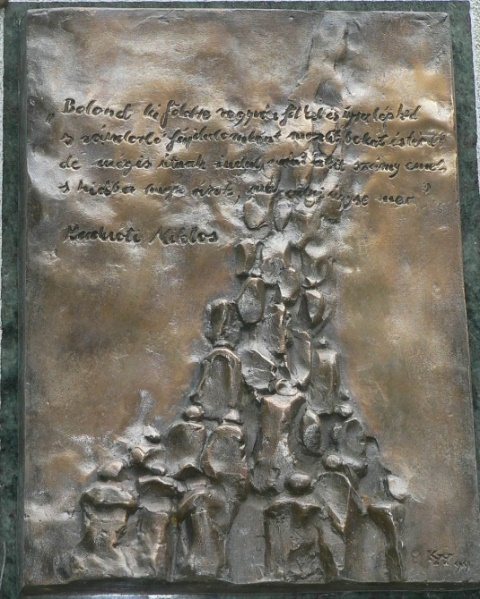 „Bolond ki földre rogyván fölkel és újra lépked
s vándorló fájdalomként mozdít bokát és térdet
de mégis útnak indul, mint akit szárny emel,
s hiába hívja árok, maradni úgyse mer”
Radnóti Miklós